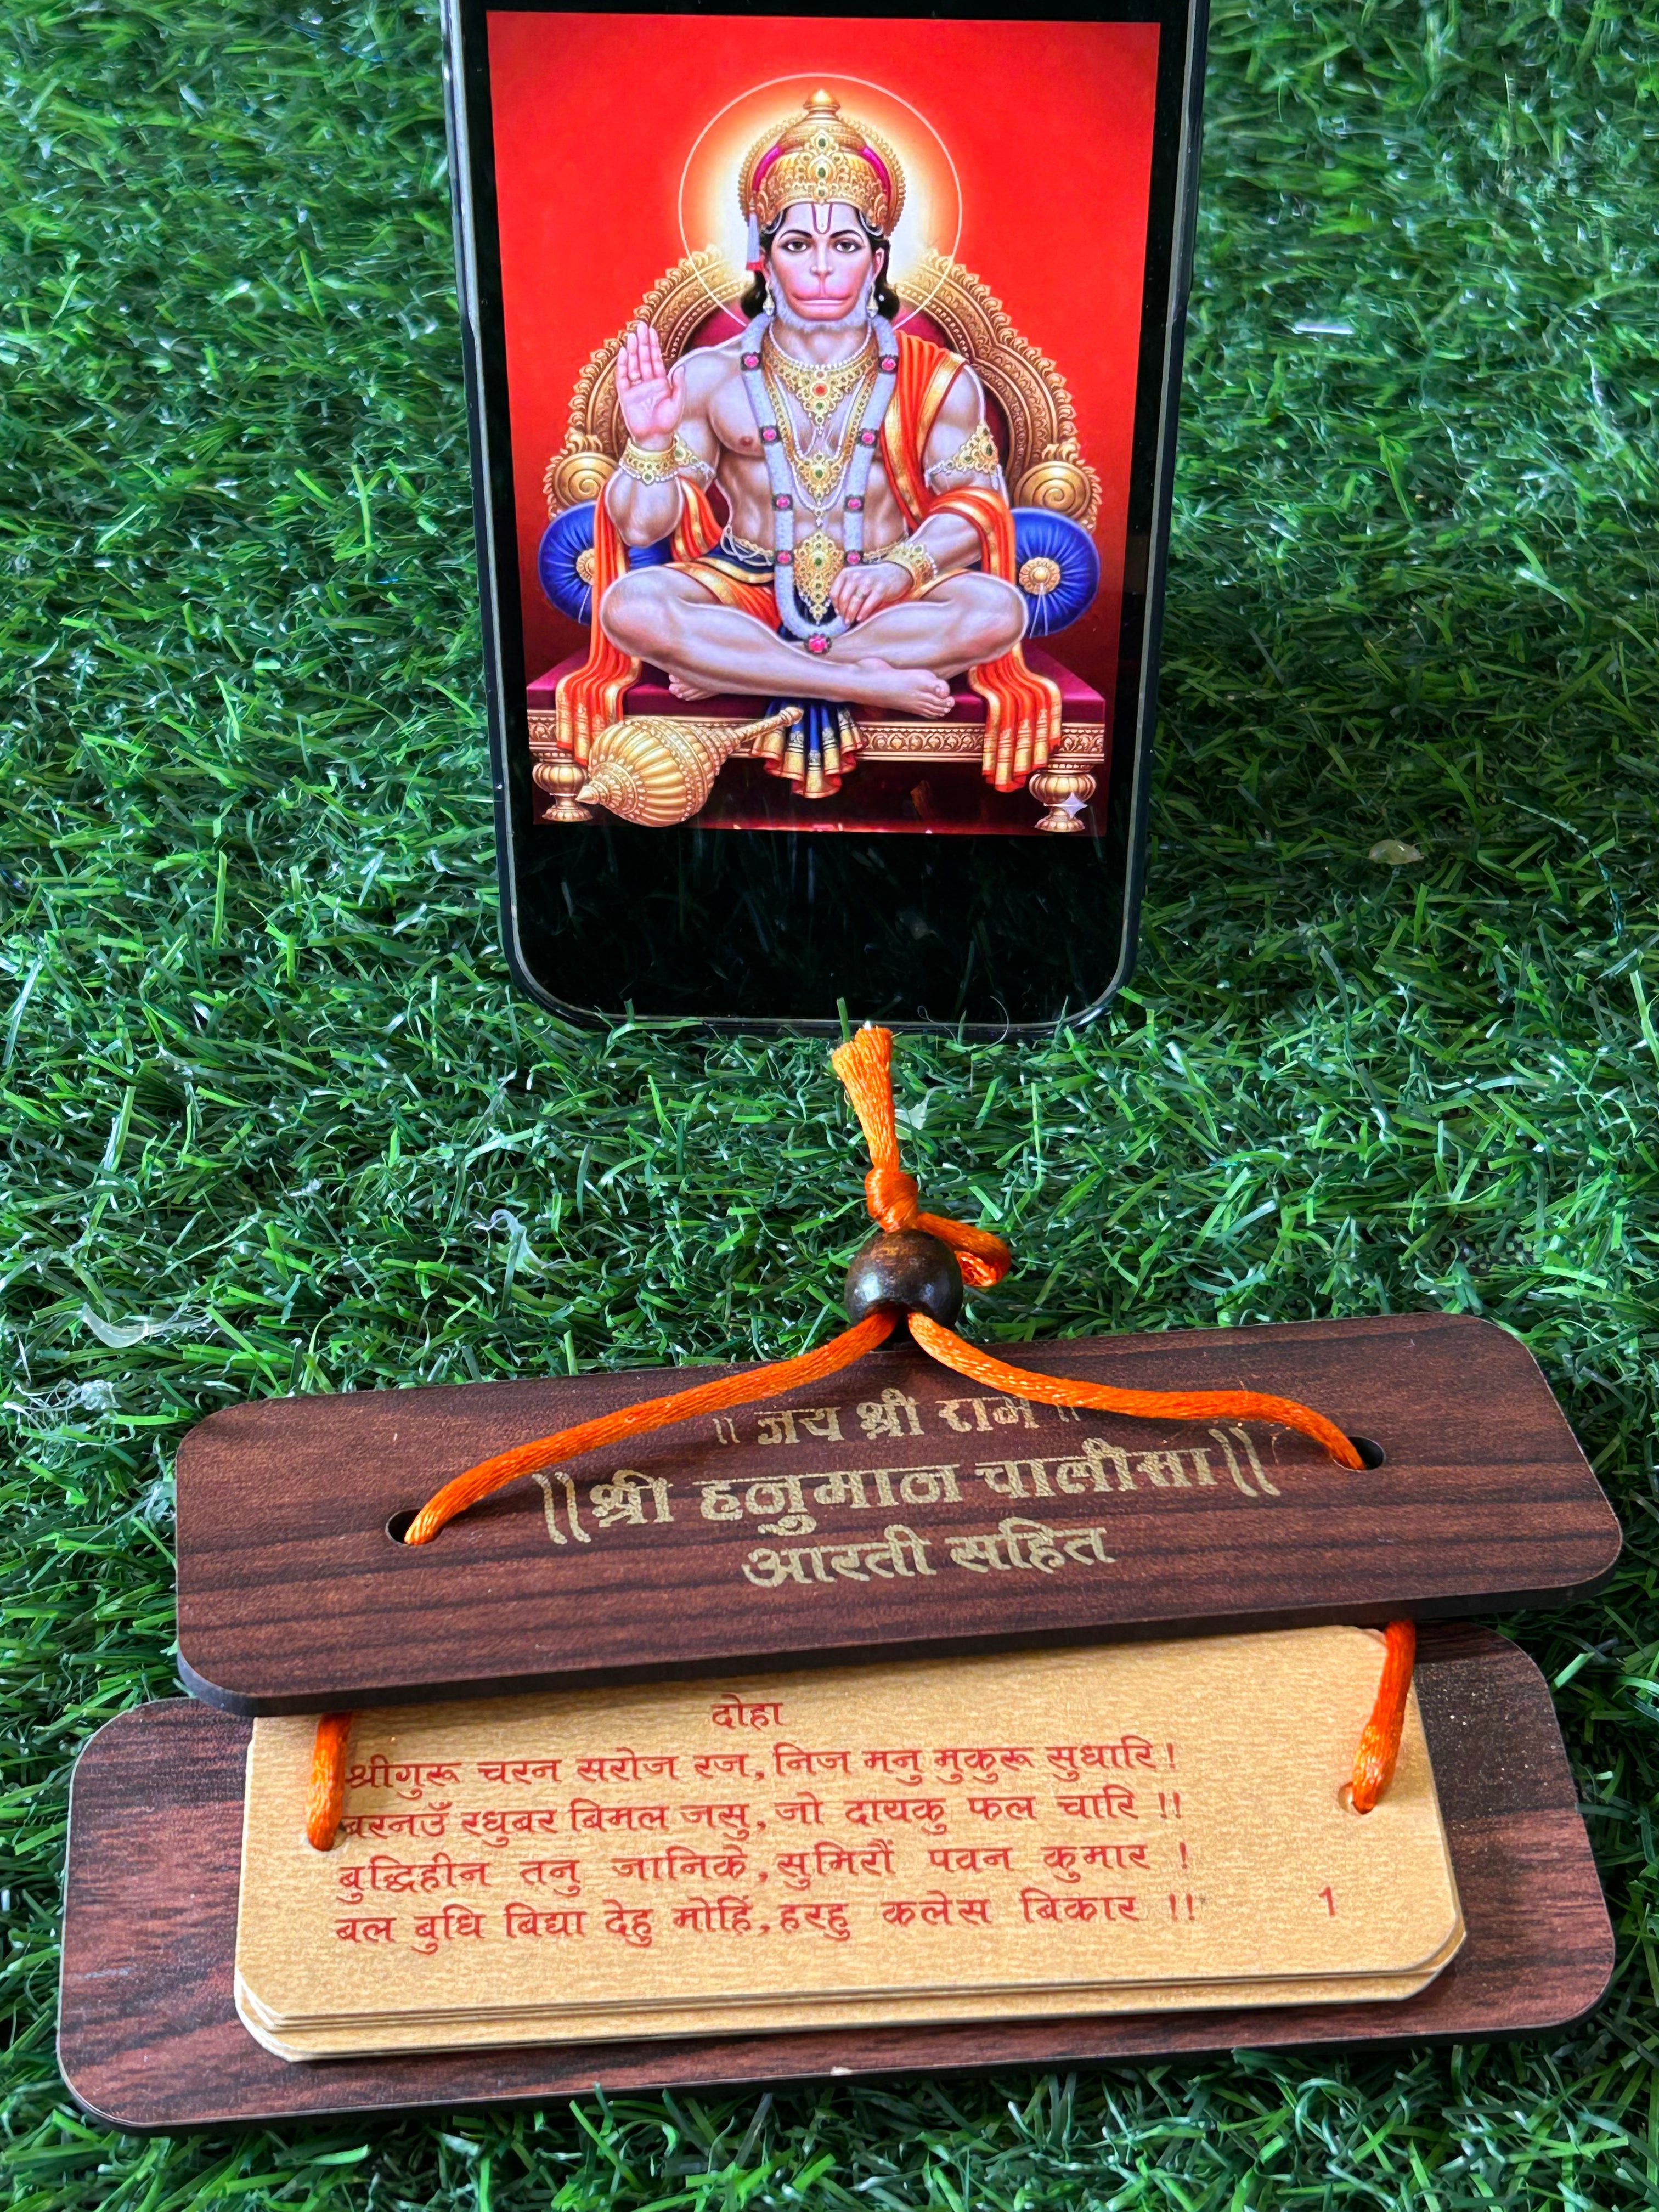 ॥ जय श्री राम ॥
||श्री हनुमान चालीसा||
आरती सहित
दोहा
श्रीगुरू चरन सरोज रज, निज मनु मुकुरू सुधारि!
बरनउँ रधुबर बिमल जसु, जो दायकु फल चारि !!
बुद्धिहीन तनु जानिके, सुमिरौं पवन कुमार !
बल बुधि बिद्या देहु मोहिं, हरहु कलेस बिकार !!
1